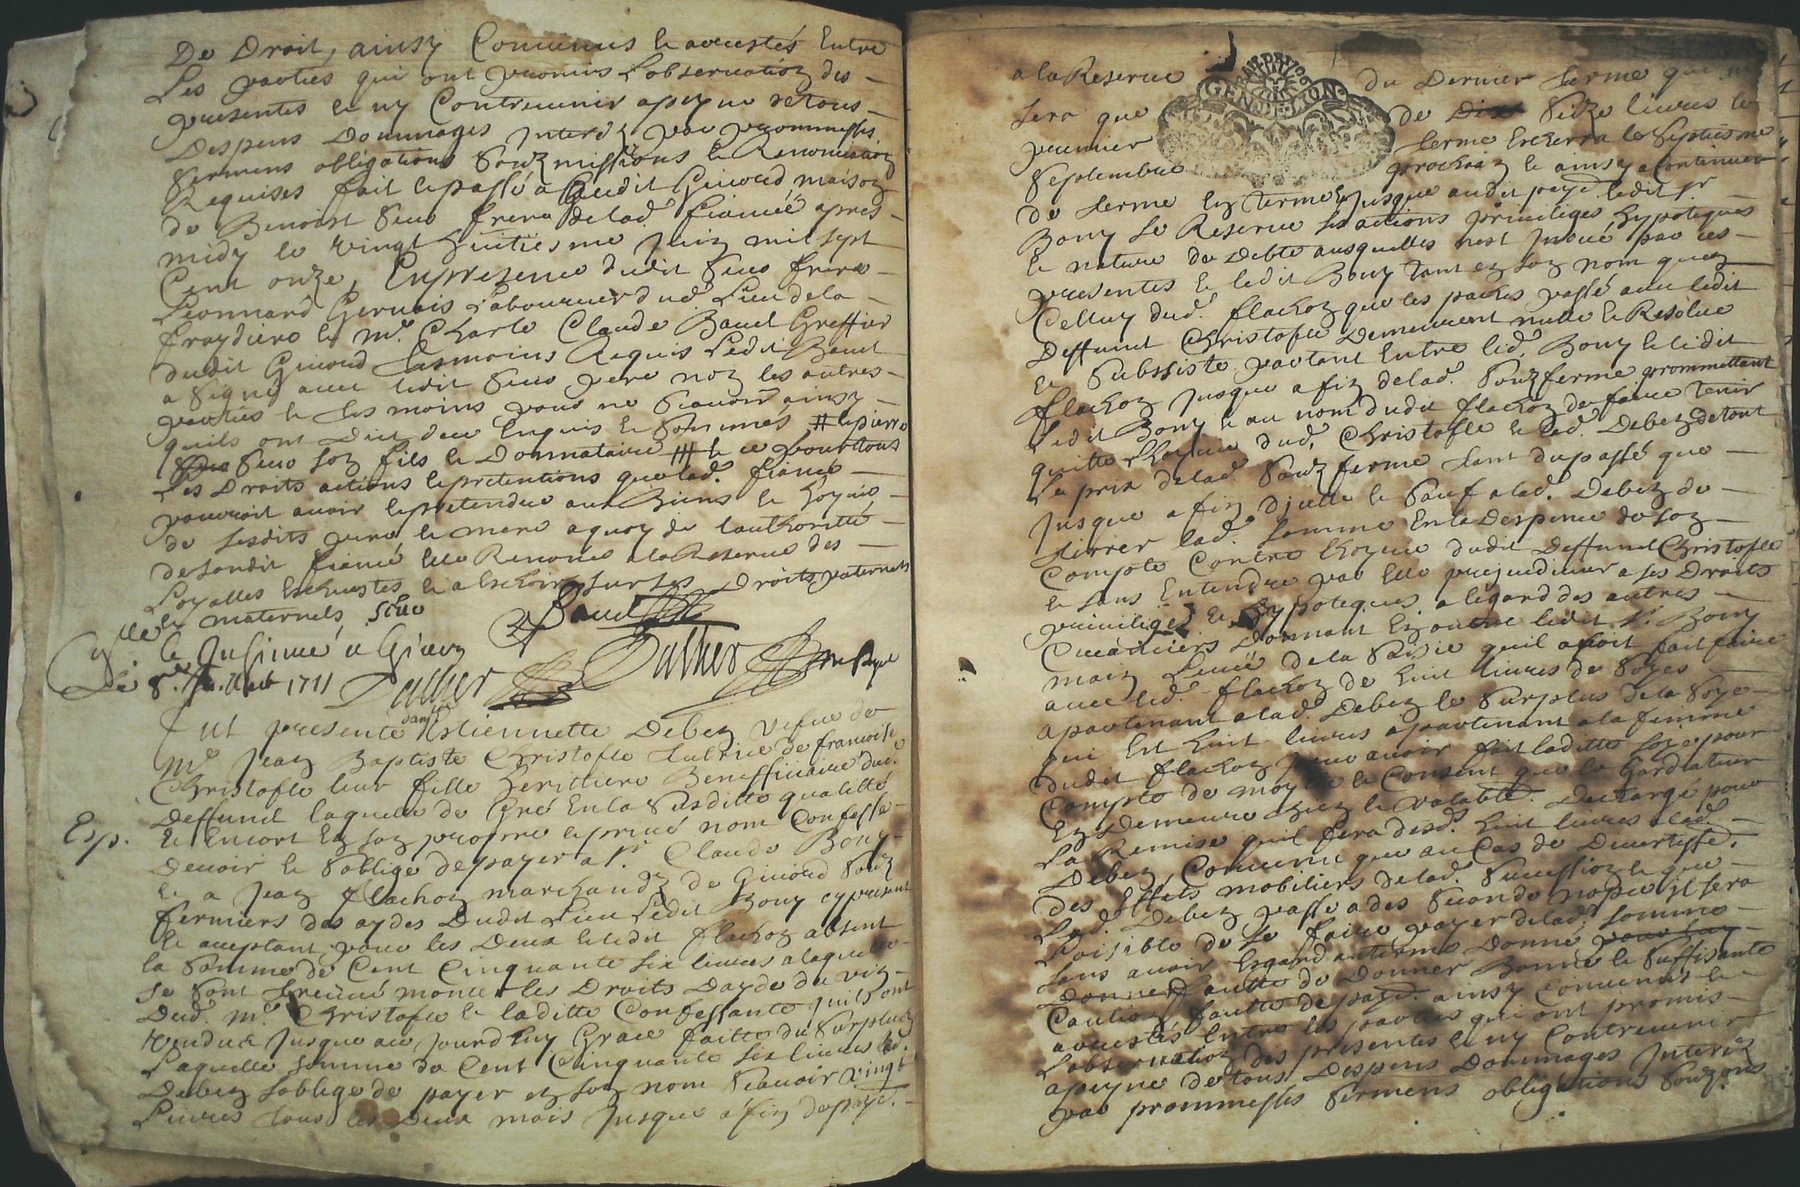 De Droit, ainsy Convenus le accestés Entre
Les parties qui ont promis L'observation des
presentes le ny Contrevenir apeyne de tous
Despens Dommages Interez par prommesses
sermens obligations Soubzmissions le Renonciations
Requises fait le passé a Givord maison
de Benoist frere delad. fiancée apres
midy le vingt huitiesme Juin mil sept
Cent onze, En presence dudit frere
Leonnard Gervais Laboureur dud. Lieu dela
fraydiere le Me. Charle Claude Baud Greffier
dudit Givord tesmoins Requis Ledit Baud
a signé avec ledit pere non les autres
parties le tesmoins pour ne scavoir ainsy
quils ont Dit de ce Enquis le sommés # le pierre
son fils le Donnataire # le ce pour tous
Les Droits actions le pretentions que lad. fiancée
pourroit avoir le pretendre aux Biens le hoyries
de sesdits pere le mere a quoy de lauthoritté
desondit fiancé Elle Renonce ala Reserve des
Loyalles Escheustes le a Eschoir sur ses Droits paternels
le maternels
le Insinué a Givors
Le 8e. 1711
fut presente dame Estiennette Debez vefve de
Me. Jean Baptiste Christofle tutrice de francoise
Christofle leur fille heritiere Benefficiaire dud.
Deffunct laquelle de Gré En la susditte qualitté
Esp. le Encort En son propre le privé nom Confesse
Devoir le soblige de payer a Sr. Claude Bony
le a Jean flachon marchands de Givord soubz
fermiers des aydes Dudit Lieu Ledit Bony cy present
le aceptant pour les Deux le ledit flachon absent
la somme de Cent Cinquante six livres a laquelle
se sont treuvé monter les Droits Dayde du vin
Dud. Me. Christofle le laditte Confessante quils ont
vendue Jusque au Jourdhuy Grace faitte du surplus
Laquelle somme de Cent Cinquante six livres lad.
Debez soblige de payer en son nom scavoir vingt
Livres tous les Deux mois Jusque a fin de payé.
a la Reserve du Dernier terme qui ne
GEN DE LYON
sera que de seize livres le
premier terme Escherra le septiesme
septembre prochain le ainsy a Continuer
de terme En terme Jusque audit payé ledit Sr.
Bony se Reserve ses actions privileges hypoteques
le nature de Debte ausquelles nest Inové par ces
presentes le ledit Bony tant en son nom quen
Celluy dud. flachon que les paches passé avec ledit
Deffunct Christofle Demeurent nulle le Resolue
le subsiste partant Entre led. Bony le ledit
flachon Jusque a fin delad. soubz ferme prommettant
Ledit Bony le au nom dudit flachon de faire tenir
quitte L'hoirie dud. Christofle le lad. Debez de tout
Le prix delad. soubz ferme tant du passé que
Jusque a fin Dicelle le sauf alad. Debez de
tirrer lad. somme En la Despence de son
Compte Contre l'hoyrie dudit Deffunct Christofle
le sans Entendre par Elle prejudicier a ses Droits
privileges le hypoteques a legard des autres
Creanciers Donnant En outre ledit Sr. Bony
main Levée de la saisie quil avoit fait faire
avec led. flachon de huit livres de soyes
apartenant alad. Debez le surplus de la soye
qui Est huit livres apartenant a la femme
dudit flachon pour avoir fait laditte soye pour
Compte de moytié le Consent que le Gardiateur
En Demeure bien le valablé. Dechargé pour
La Remise quil fera desd. huit livres alad.
Debez, Convenu que au Cas de Divertisse.
des Effets mobiliers delad. succession le que
Lad. Debez passe a des secondes nopces il sera
Loisible de se faire payer delad. somme
sans avoir Esgard au terme Donné
Donner faulte de Donner Bonne le suffisante
Caution faulte de payé. ainsy Convenus le
accestés Entre les parties qui ont promis
L'observation des presentes le ny Contrevenir
apeyne de tous Despens Dommages Interez
par prommesses sermens obligations soubz